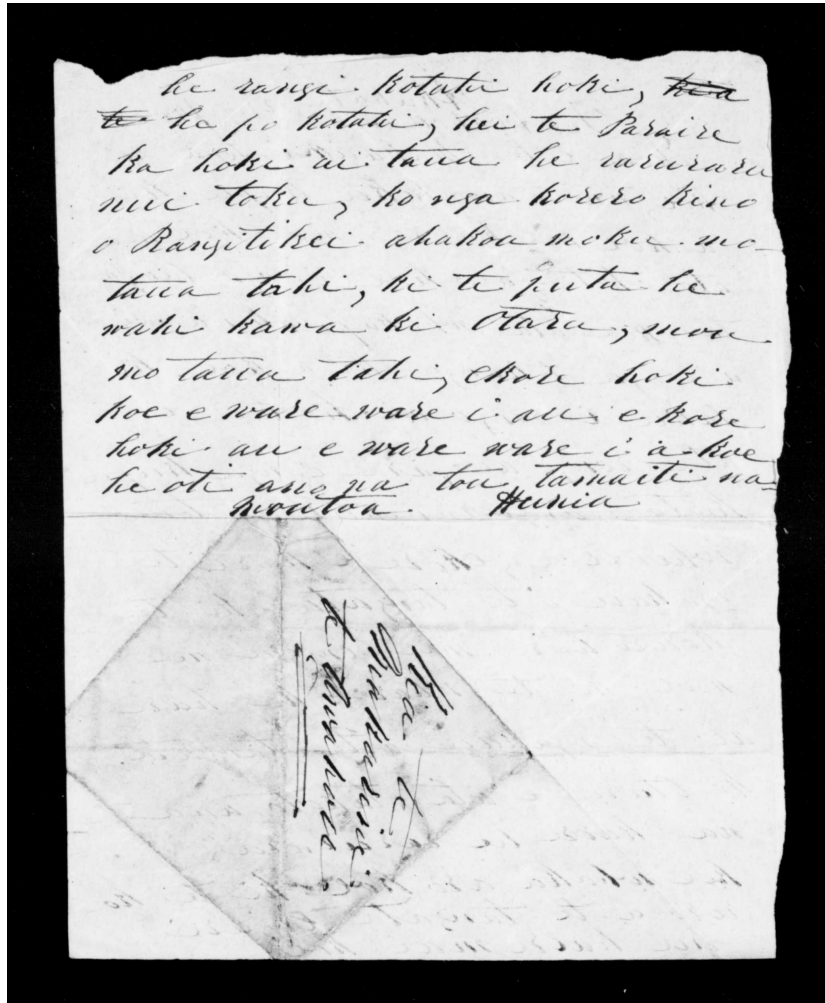 he rangi kotahi hoki, kia
te he po kotahi, hei te Paraire
ka hoki ai taua he raruraru
nui toku, ko nga korero kino
o Rangitikei ahakoa moku mo-
taua tahi, ki te puta he
wahi kawa ki Otara, mou
mo taua tahi, ekore hoki
koe e ware ware i au e kore
hoki au e ware ware i a koe
heoti ano, na tou, tamaiti na-
montoa. Hunia
Kia te
te